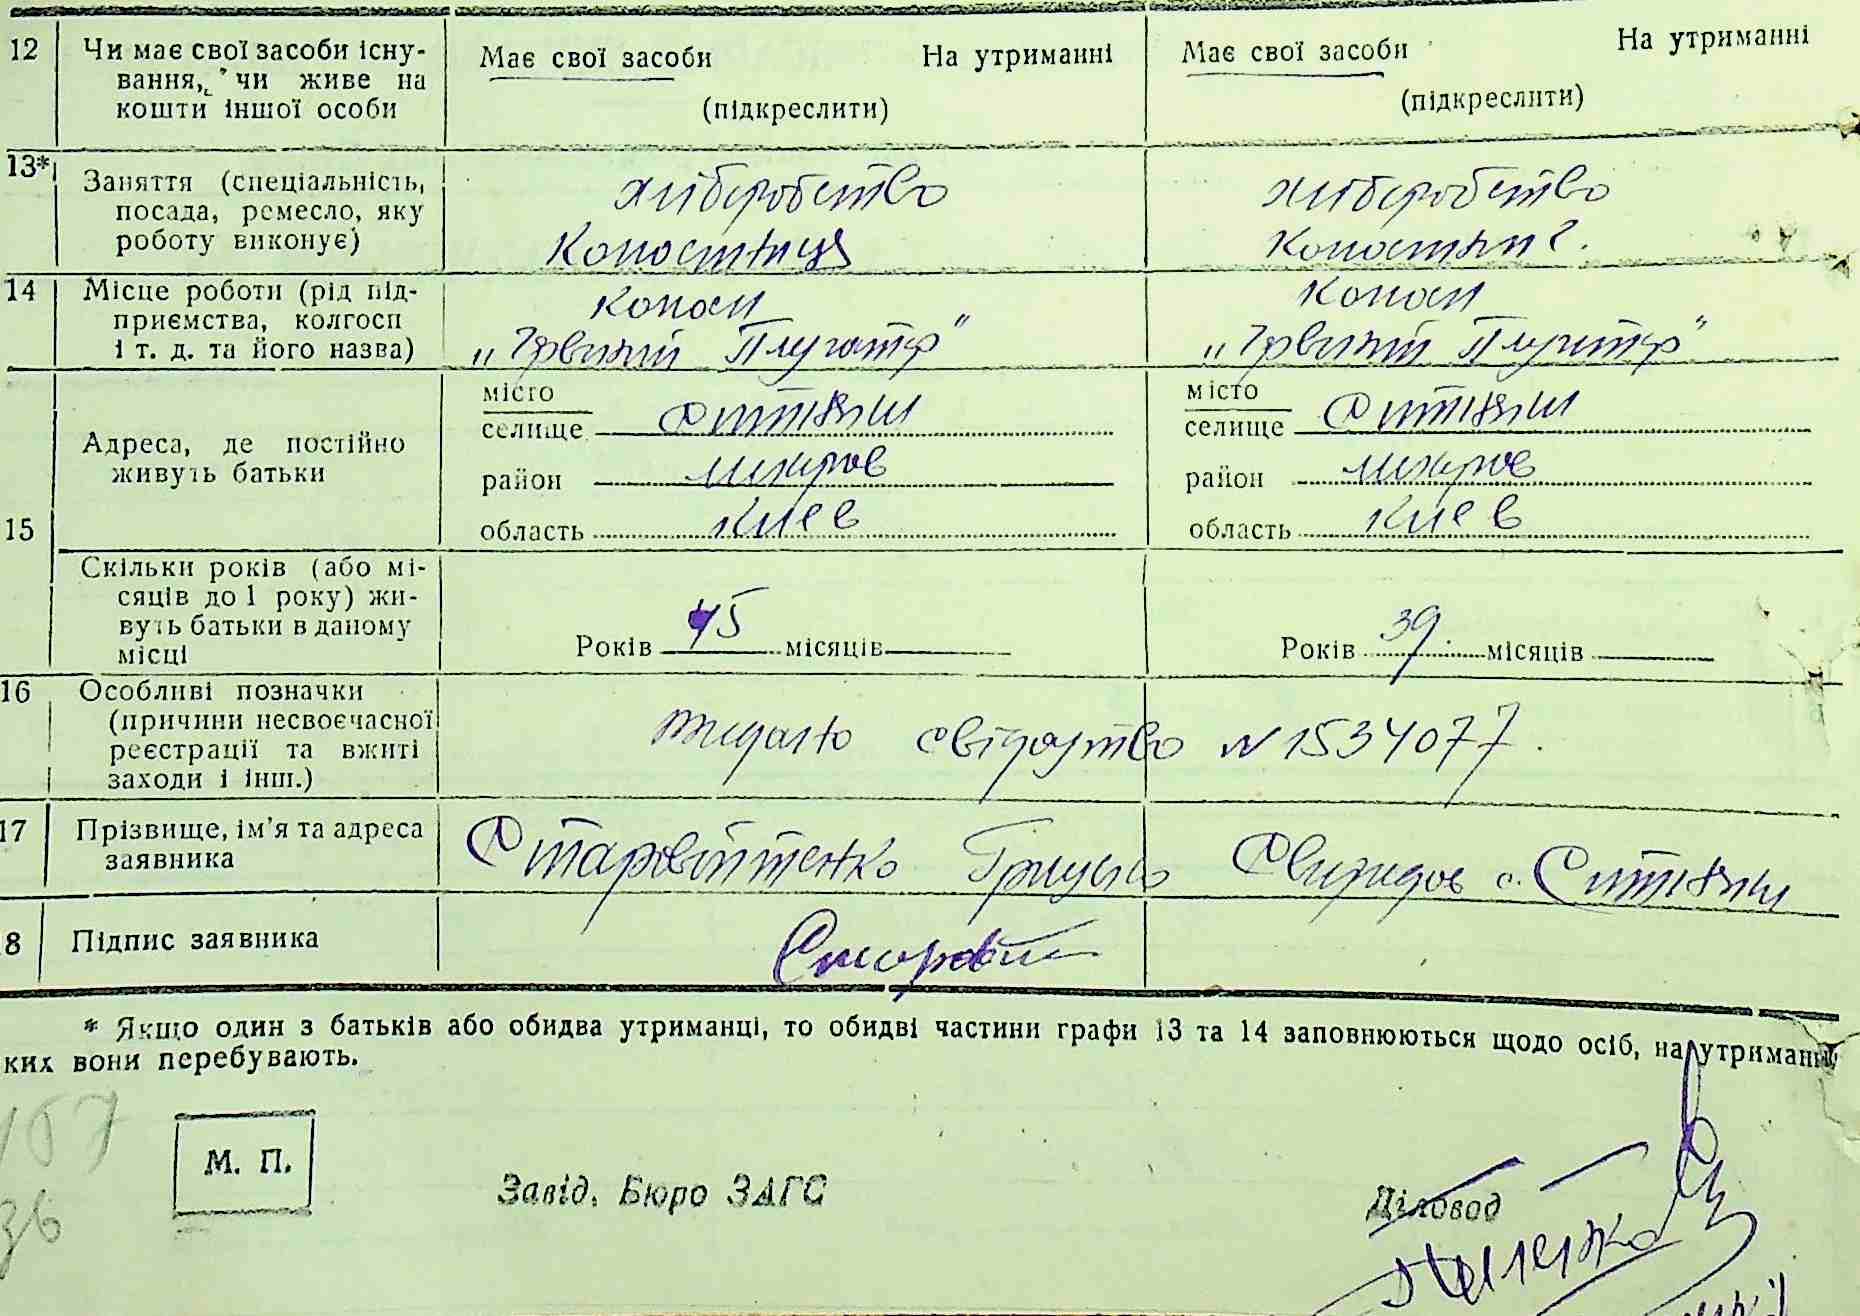 12 Чи має свої засоби існу-
вання, чи живе на
кошти іншої особи
Має свої засоби На утриманні
(підкреслити)
Має свої засоби На утриманні
(підкреслити)
13* Заняття (спеціальність,
посада, ремесло, яку
роботу виконує)
хлібробство
хлібробство
14 Місце роботи (рід під-
приємства, колгосп
і т. д. та його назва)
15 Адреса, де постійно
живуть батьки
місто
селище Ситняки
район Макров
область Киев
місто
селище Ситняки
район Макров
область Киев
Скільки років (або мі-
сяців до 1 року) жи-
вуть батьки в даному
місці
Років 45 місяців
Років 39. місяців
16 Особливі позначки
(причини несвоєчасної
реєстрації та вжиті
заходи і інш.)
свідоцтво N 1534077.
17 Прізвище, ім’я та адреса
заявника
Старовітенко Грицько Свиридов с. Ситняки
8 Підпис заявника
* Якщо один з батьків або обидва утриманці, то обидві частини графи 13 та 14 заповнюються щодо осіб, на утриманні
ких вони перебувають.
М. П.
Завід. Бюро ЗАГС
Діловод